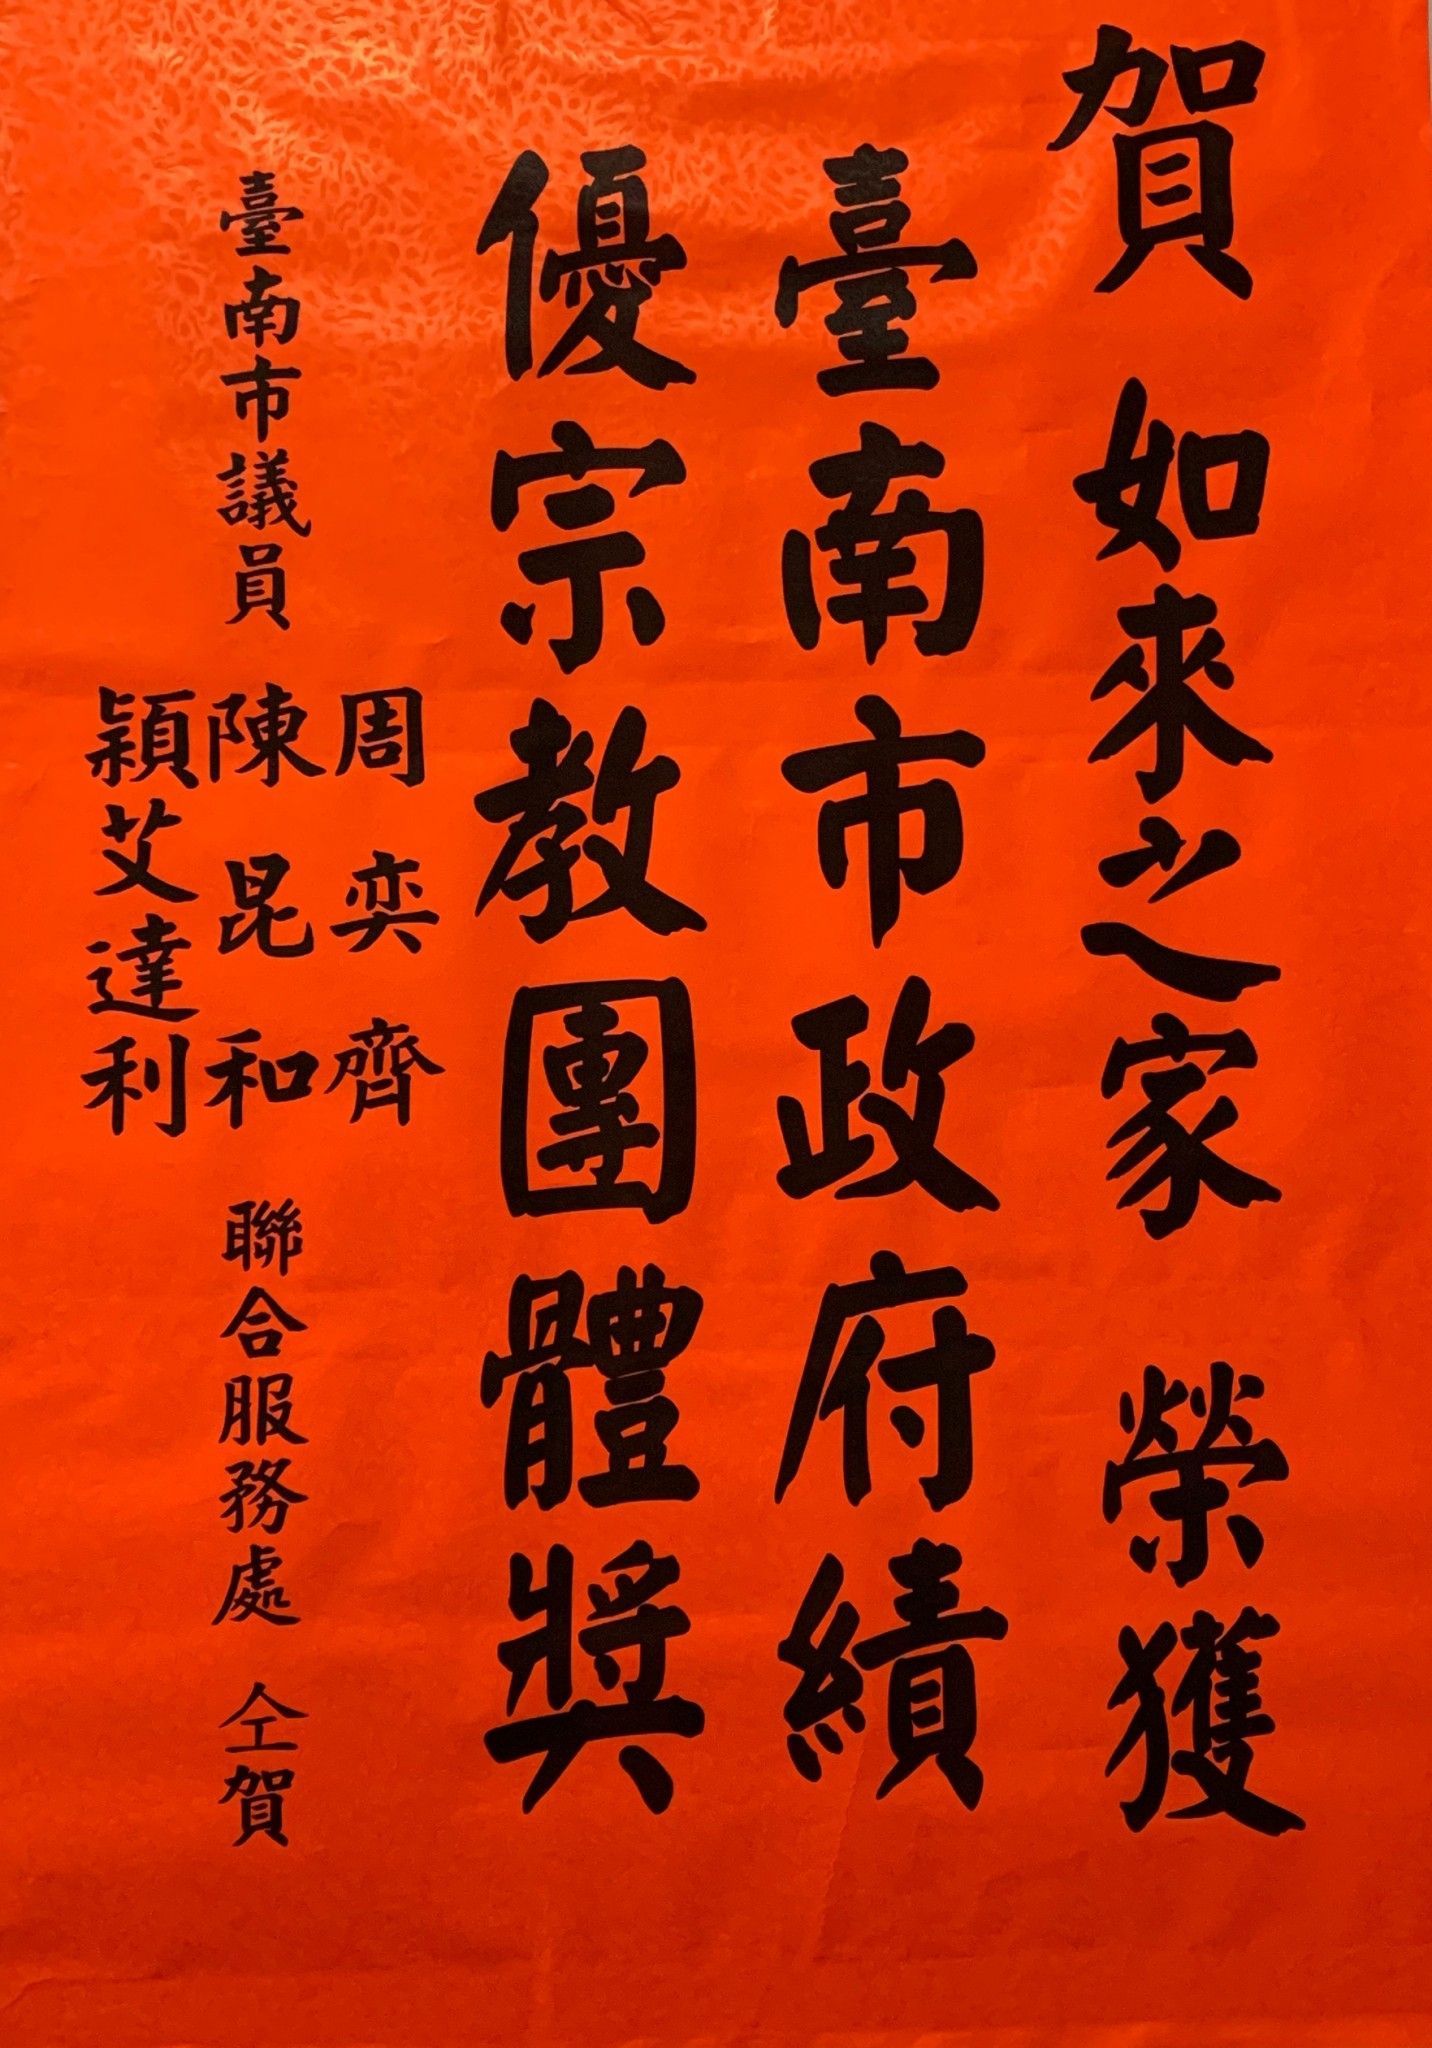 賀 如來之家 榮獲
臺南市政府績
優宗教團體獎
臺南市議員
周奕齊
陳昆和
穎艾達利
聯合服務處 仝賀